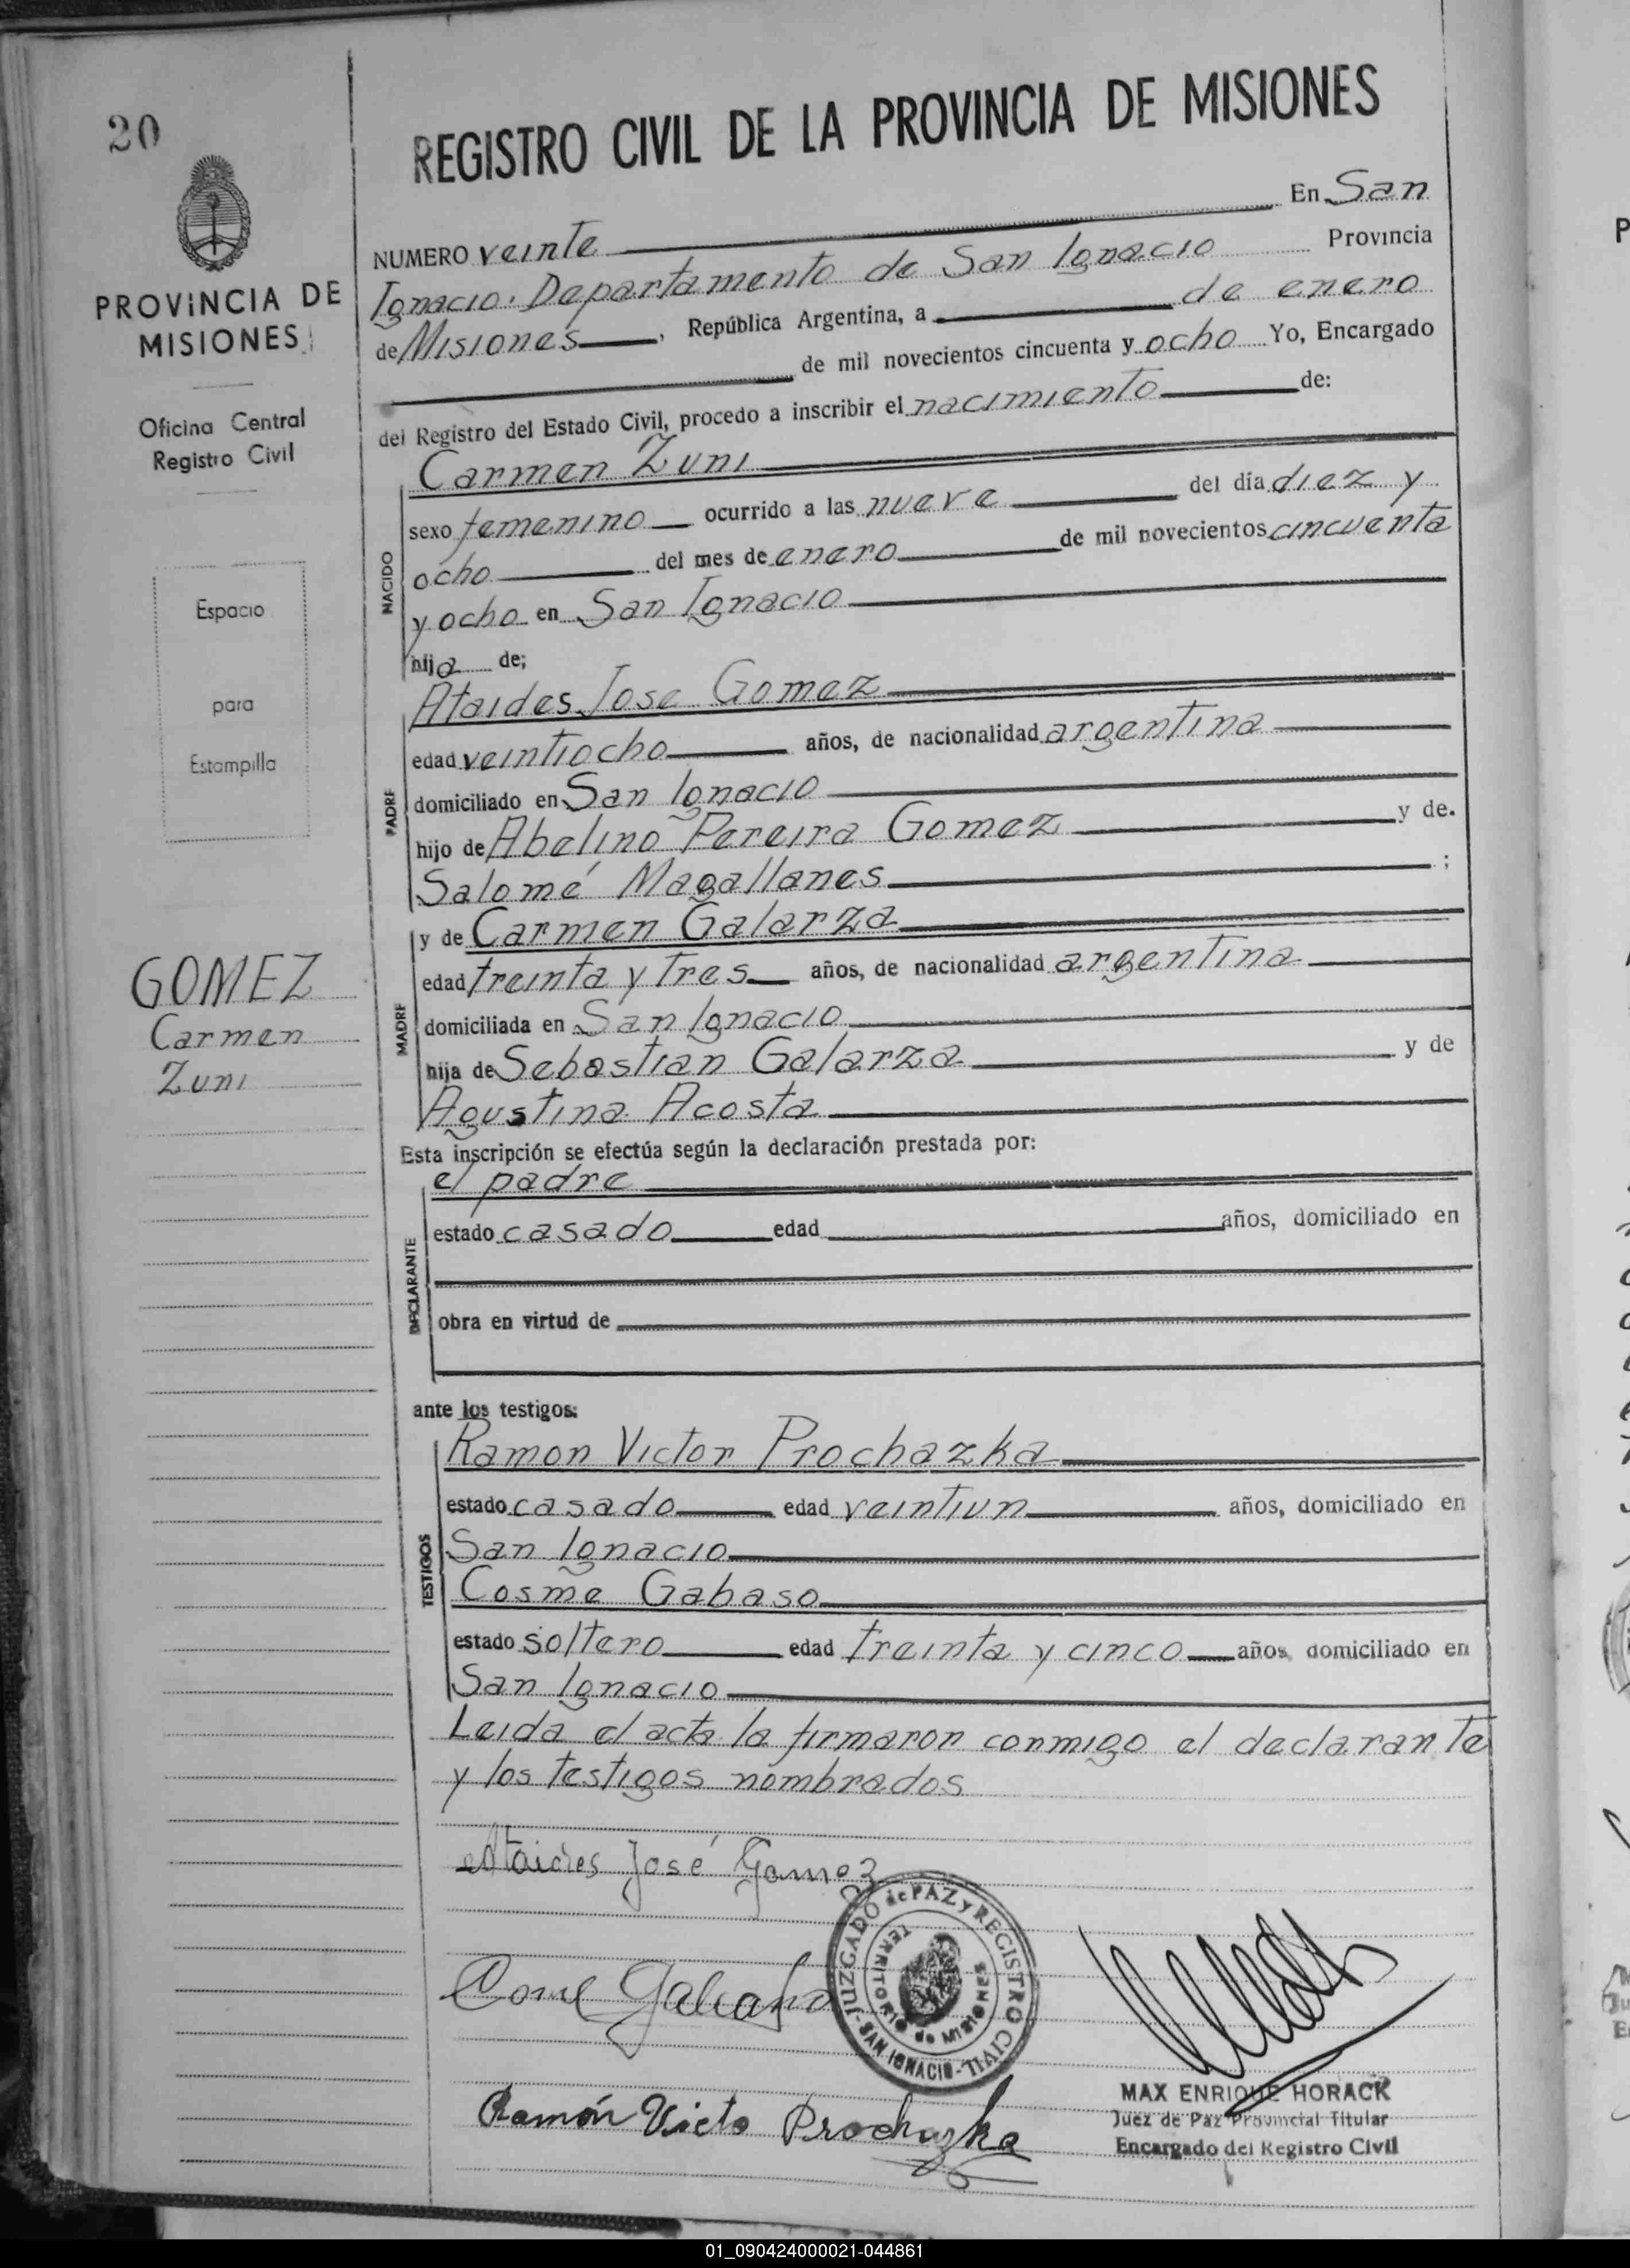 20
PROVINCIA DE
MISIONES
Oficina Central
Registro Civil
Espacio
para
Estampilla
GOMEZ
Carmen
Zuni
REGISTRO CIVIL DE LA PROVINCIA DE MISIONES
NUMERO veinte En San
Ignacio. Departamento de San Ignacio Provincia
de Misiones, República Argentina, a de enero
de mil novecientos cincuenta y ocho Yo, Encargado
del Registro del Estado Civil, procedo a inscribir el nacimiento de:
NACIDO
Carmen Zuni
sexo femenino ocurrido a las nueve del día diez y
ocho del mes de enero de mil novecientos cincuenta
y ocho en San Ignacio
hija de;
PADRE
Ataides Jose Gomez
edad veintiocho años, de nacionalidad argentina
domiciliado en San Ignacio
hijo de Abelino Pereira Gomez y de.
Salomé Magallanes ;
MADRE
y de Carmen Galarza
edad treinta y tres años, de nacionalidad argentina
domiciliada en San Ignacio
hija de Sebastian Galarza y de
Agustina Acosta
Esta inscripción se efectúa según la declaración prestada por:
DECLARANTE
el padre
estado casado edad años, domiciliado en
obra en virtud de
ante los testigos:
TESTIGOS
Ramon Victor Prochazka
estado casado edad veintiun años, domiciliado en
San Ignacio
Cosme Gabaso
estado soltero edad treinta y cinco años, domiciliado en
San Ignacio
Leida el acta la firmaron conmigo el declarante
y los testigos nombrados
Ataides José Gomez
JUZGADO de PAZ y REGISTRO CIVIL - SAN IGNACIO -
TERRITORIO de MISIONES
Ramón Victo Prochazka
MAX ENRIQUE HORACK
Juez de Paz Provincial Titular
Encargado del Registro Civil
01_090424000021-044861